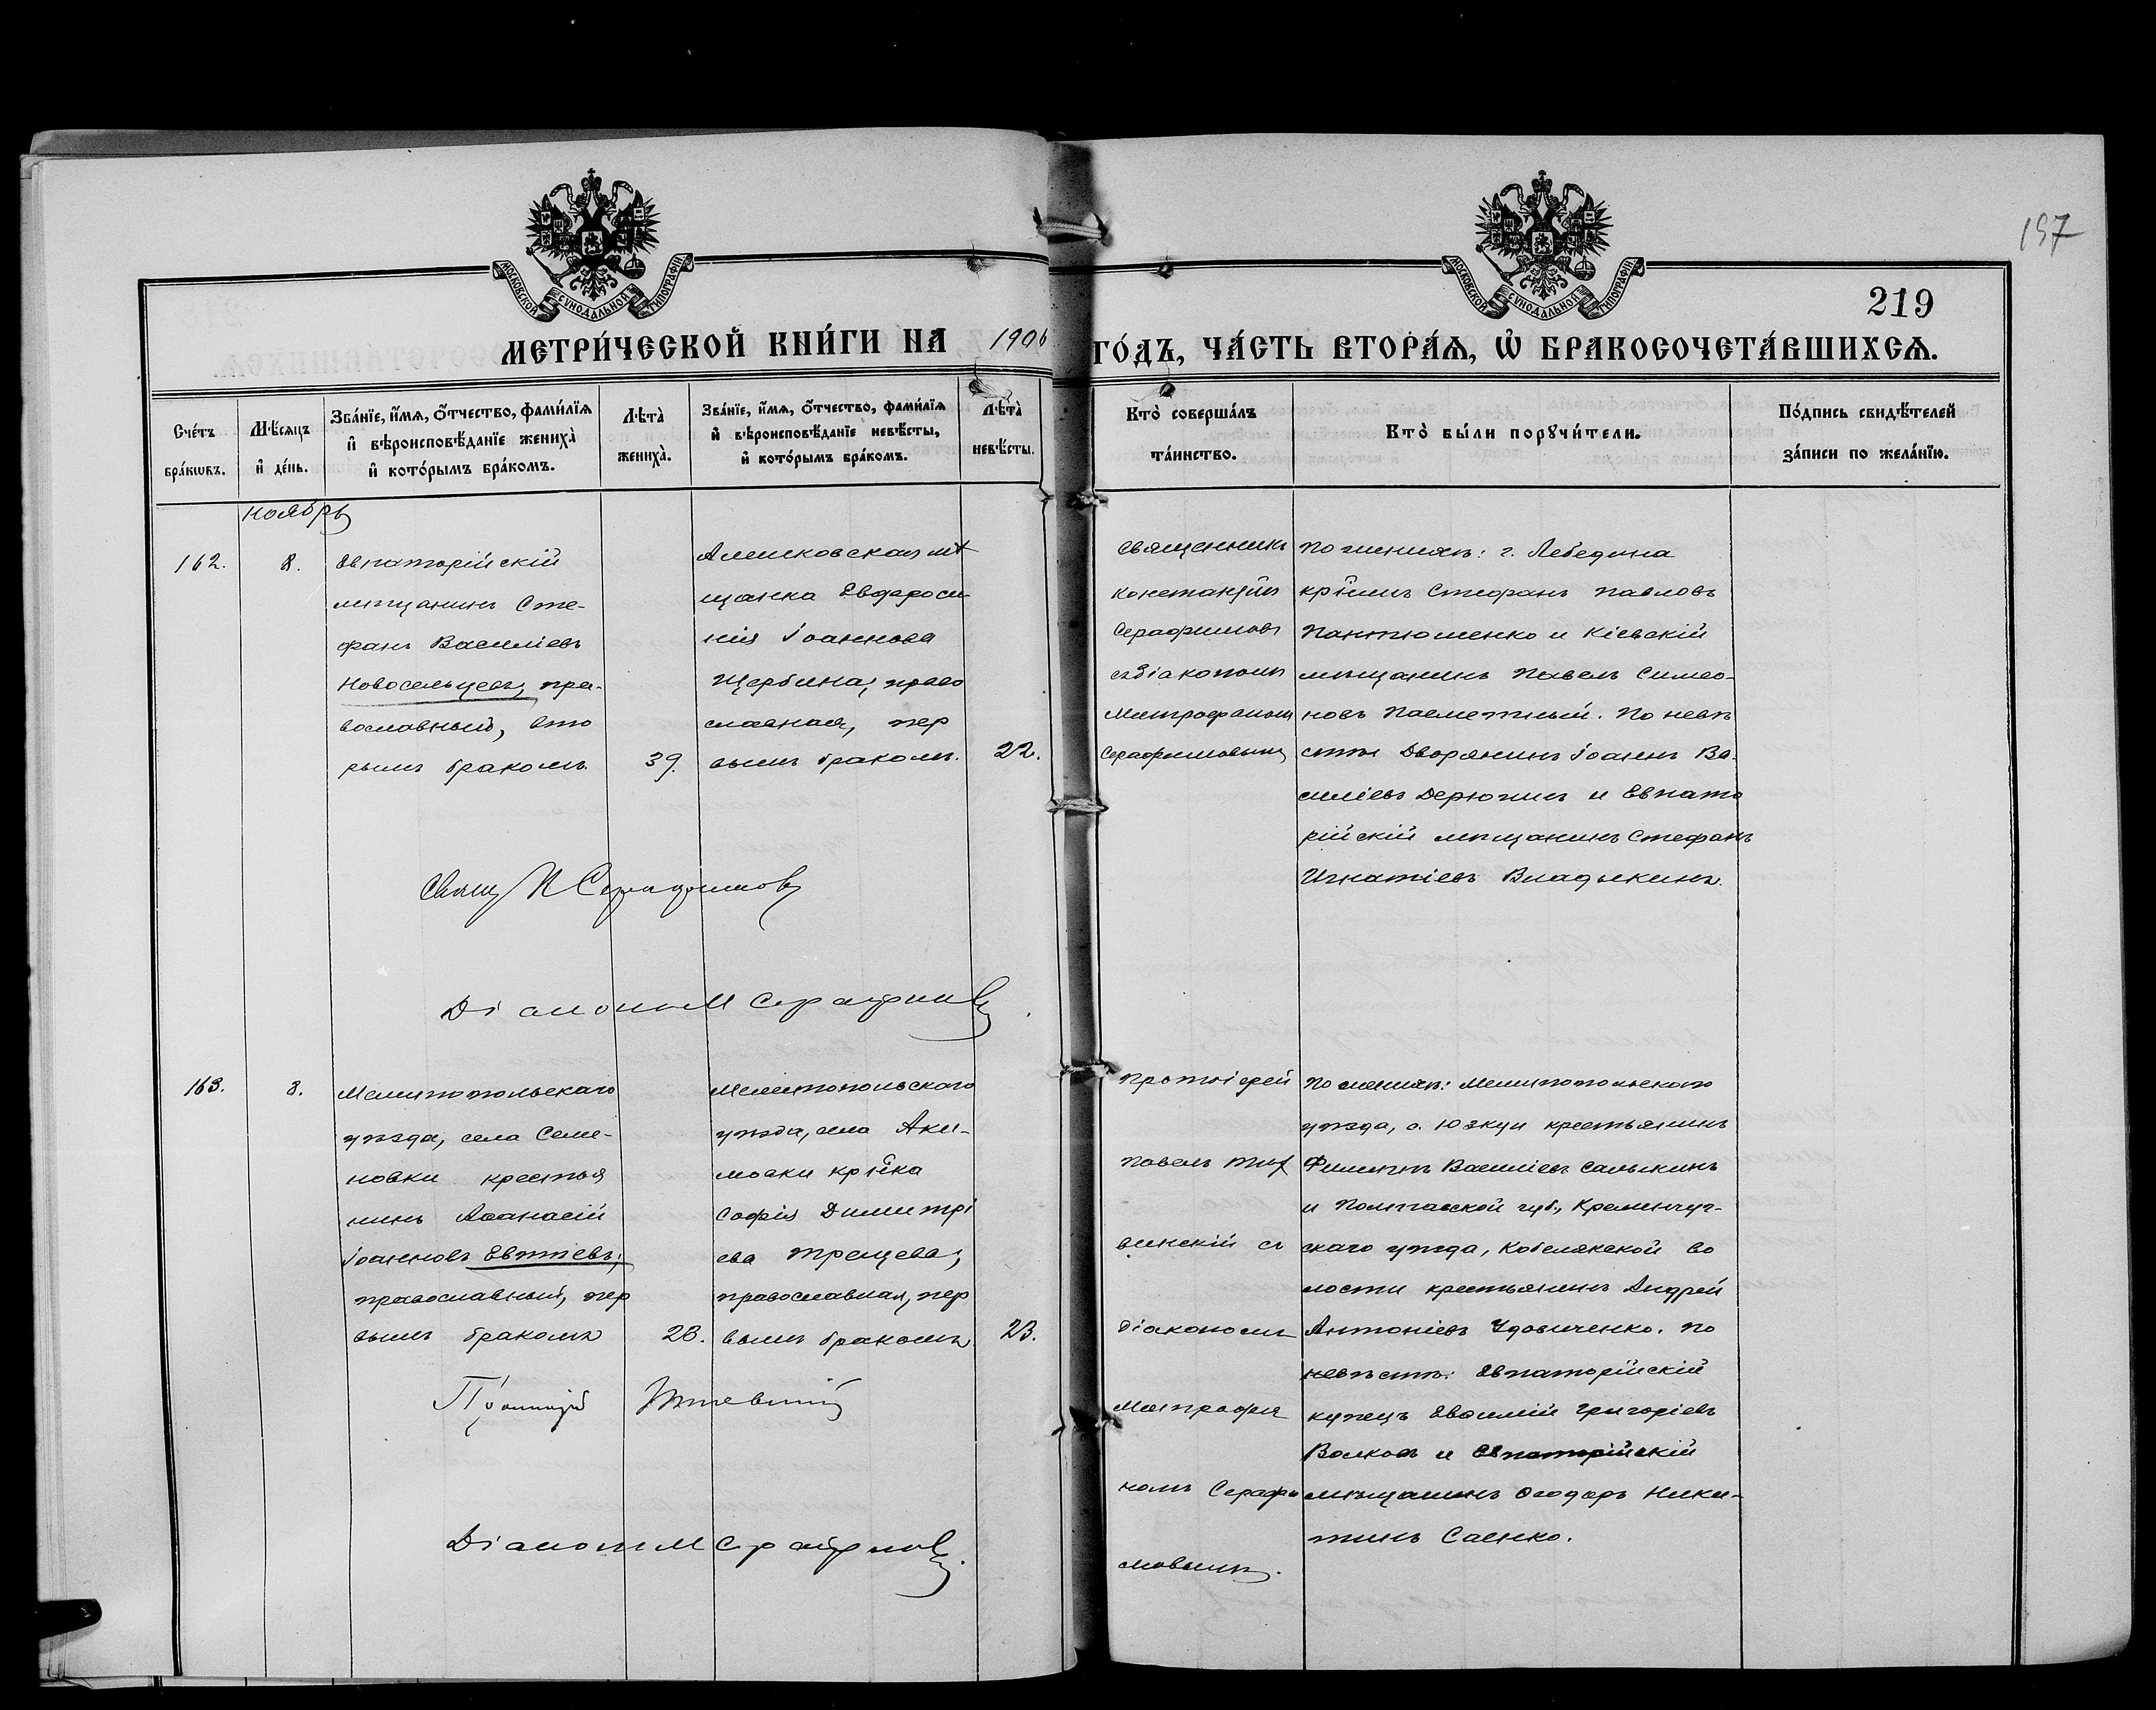 197
МОСКОВСКОЙ СѴНОДАЛЬНОЙ ТИПОГРАФІИ
МОСКОВСКОЙ СѴНОДАЛЬНОЙ ТИПОГРАФІИ
219
МЕТРИ́ЧЕСКОЙ КНИ́ГИ НА 1906 ГО́ДЪ, ЧА́СТЬ ВТОРА́Ѧ, Ѡ҆ БРАКОСОЧЕТА́ВШИХСѦ.
Сче́тъ
бра́кѡвъ.
Мѣ́сяцъ
и҆ де́нь.
Зва́нїе, и҆́мѧ, ѻ҆́тчество, фами́лїѧ
и҆ вѣроисповѣ́данїе жениха̀
и҆ кото́рымъ бра́комъ.
Лѣта̀
жениха̀.
Зва́нїе, и҆́мѧ, ѻ҆́тчество, фами́лїѧ
и҆ вѣроисповѣ́данїе невѣ́сты,
и҆ кото́рымъ бра́комъ.
Лѣта̀
невѣ́сты.
Кто̀ соверша́лъ
та́инство.
Кто̀ бы́ли порꙋчи́тели.
По́дпись свидѣ́телей
за́писи по жела́нїю.
Ноябрь
162.
8.
Евпаторійскій
мѣщанинъ Сте-
фанъ Василіевъ
Новосельцевъ, пра-
вославный, вто
рымъ бракомъ.
39.
Алешковская мѣ
щанка Евфроси
нія Іоаннова
Щербина, право
славная, пер
вымъ бракомъ.
22.
Священникъ
Константинъ
Серафимовъ
съ діакономъ
Митрофаномъ
Серафимовымъ
По женихѣ: г. Лебедина
кр-нинъ Стефанъ Павловъ
Пантюшенко и Кіевскій
мѣщанинъ Павелъ Симео-
новъ По невѣ
стѣ Дворянинъ Іоаннъ Ва-
силіевъ Дерюгинъ и Евпато
рійскій мѣщанинъ Стефанъ
Игнатіевъ Владыкинъ.
Свящ К Серафимовъ
Діаконъ М Серафимовъ
163.
8.
Мелитопольскаго
уѣзда, села Семе-
новки крестья
нинъ Аѳанасій
Іоанновъ Евтѣевъ,
православный, пер
вымъ бракомъ
28.
Мелитопольскаго
уѣзда, села Аки-
мовки кр-нка
Софія Димитрі
ева Трещева,
православная, пер
вымъ бракомъ
23.
Протоіерей
Павелъ
съ
діакономъ
Митрофа
номъ Серафи
мовымъ.
По женихѣ: Мелитопольскаго
уѣзда, с. Юзкуи крестьянинъ
Филиппъ Василіевъ Салыкинъ
и Полтавской губ., Кременчуг-
скаго уѣзда, Кобелякской во
лости крестьянинъ Андрей
Антоніевъ Удовиченко. По
невѣстѣ: Евпаторійскій
купецъ Евѳимій Григоріевъ
Волковъ и Евпаторійскій
мѣщанинъ Ѳеодоръ Ники-
тинъ Саенко.
Діаконъ М Серафимовъ.